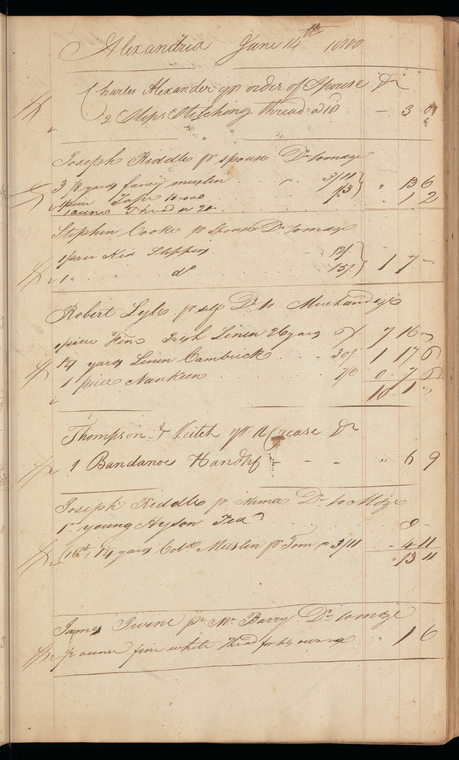 Alexandria June 14th 1800
Charles Alexander pr order of Spouse Dr
2 Slips Stitching thread a 18 - 3 0
Joseph Riddle pr spouse Dr to mdze
3 yards fancy muslin 3/11
piece Tape 1/3 " 13 6
1 ounce Thread 1 2
Stephen Cooke pr spouse Dr to mdze
1 pair Kid Slippers 12/
1 " do 15/ 1 7 -
Robert Lyle pr self Dr to Merchandize
1 piece Fine Irish Linen 26 yards 6/ 7 16 "
1/4 yards Linen Cambrick 30/ 1 17 6
1 piece Nankeen 7/6 0 7 6
10 1 "
Thompson & Veitch pr Dr
1 Bandanoe Handkf - - " 6 9
Joseph Riddle pr Mima Dr to Mdze
1 lb young Hyson Tea 9 -
14 yards Cold Muslin pr Tom a 3/11 - 4 11
" 13 11
James Irvine pr Mr Barry Dr to mdze
ounce fine white Thd " 1 6